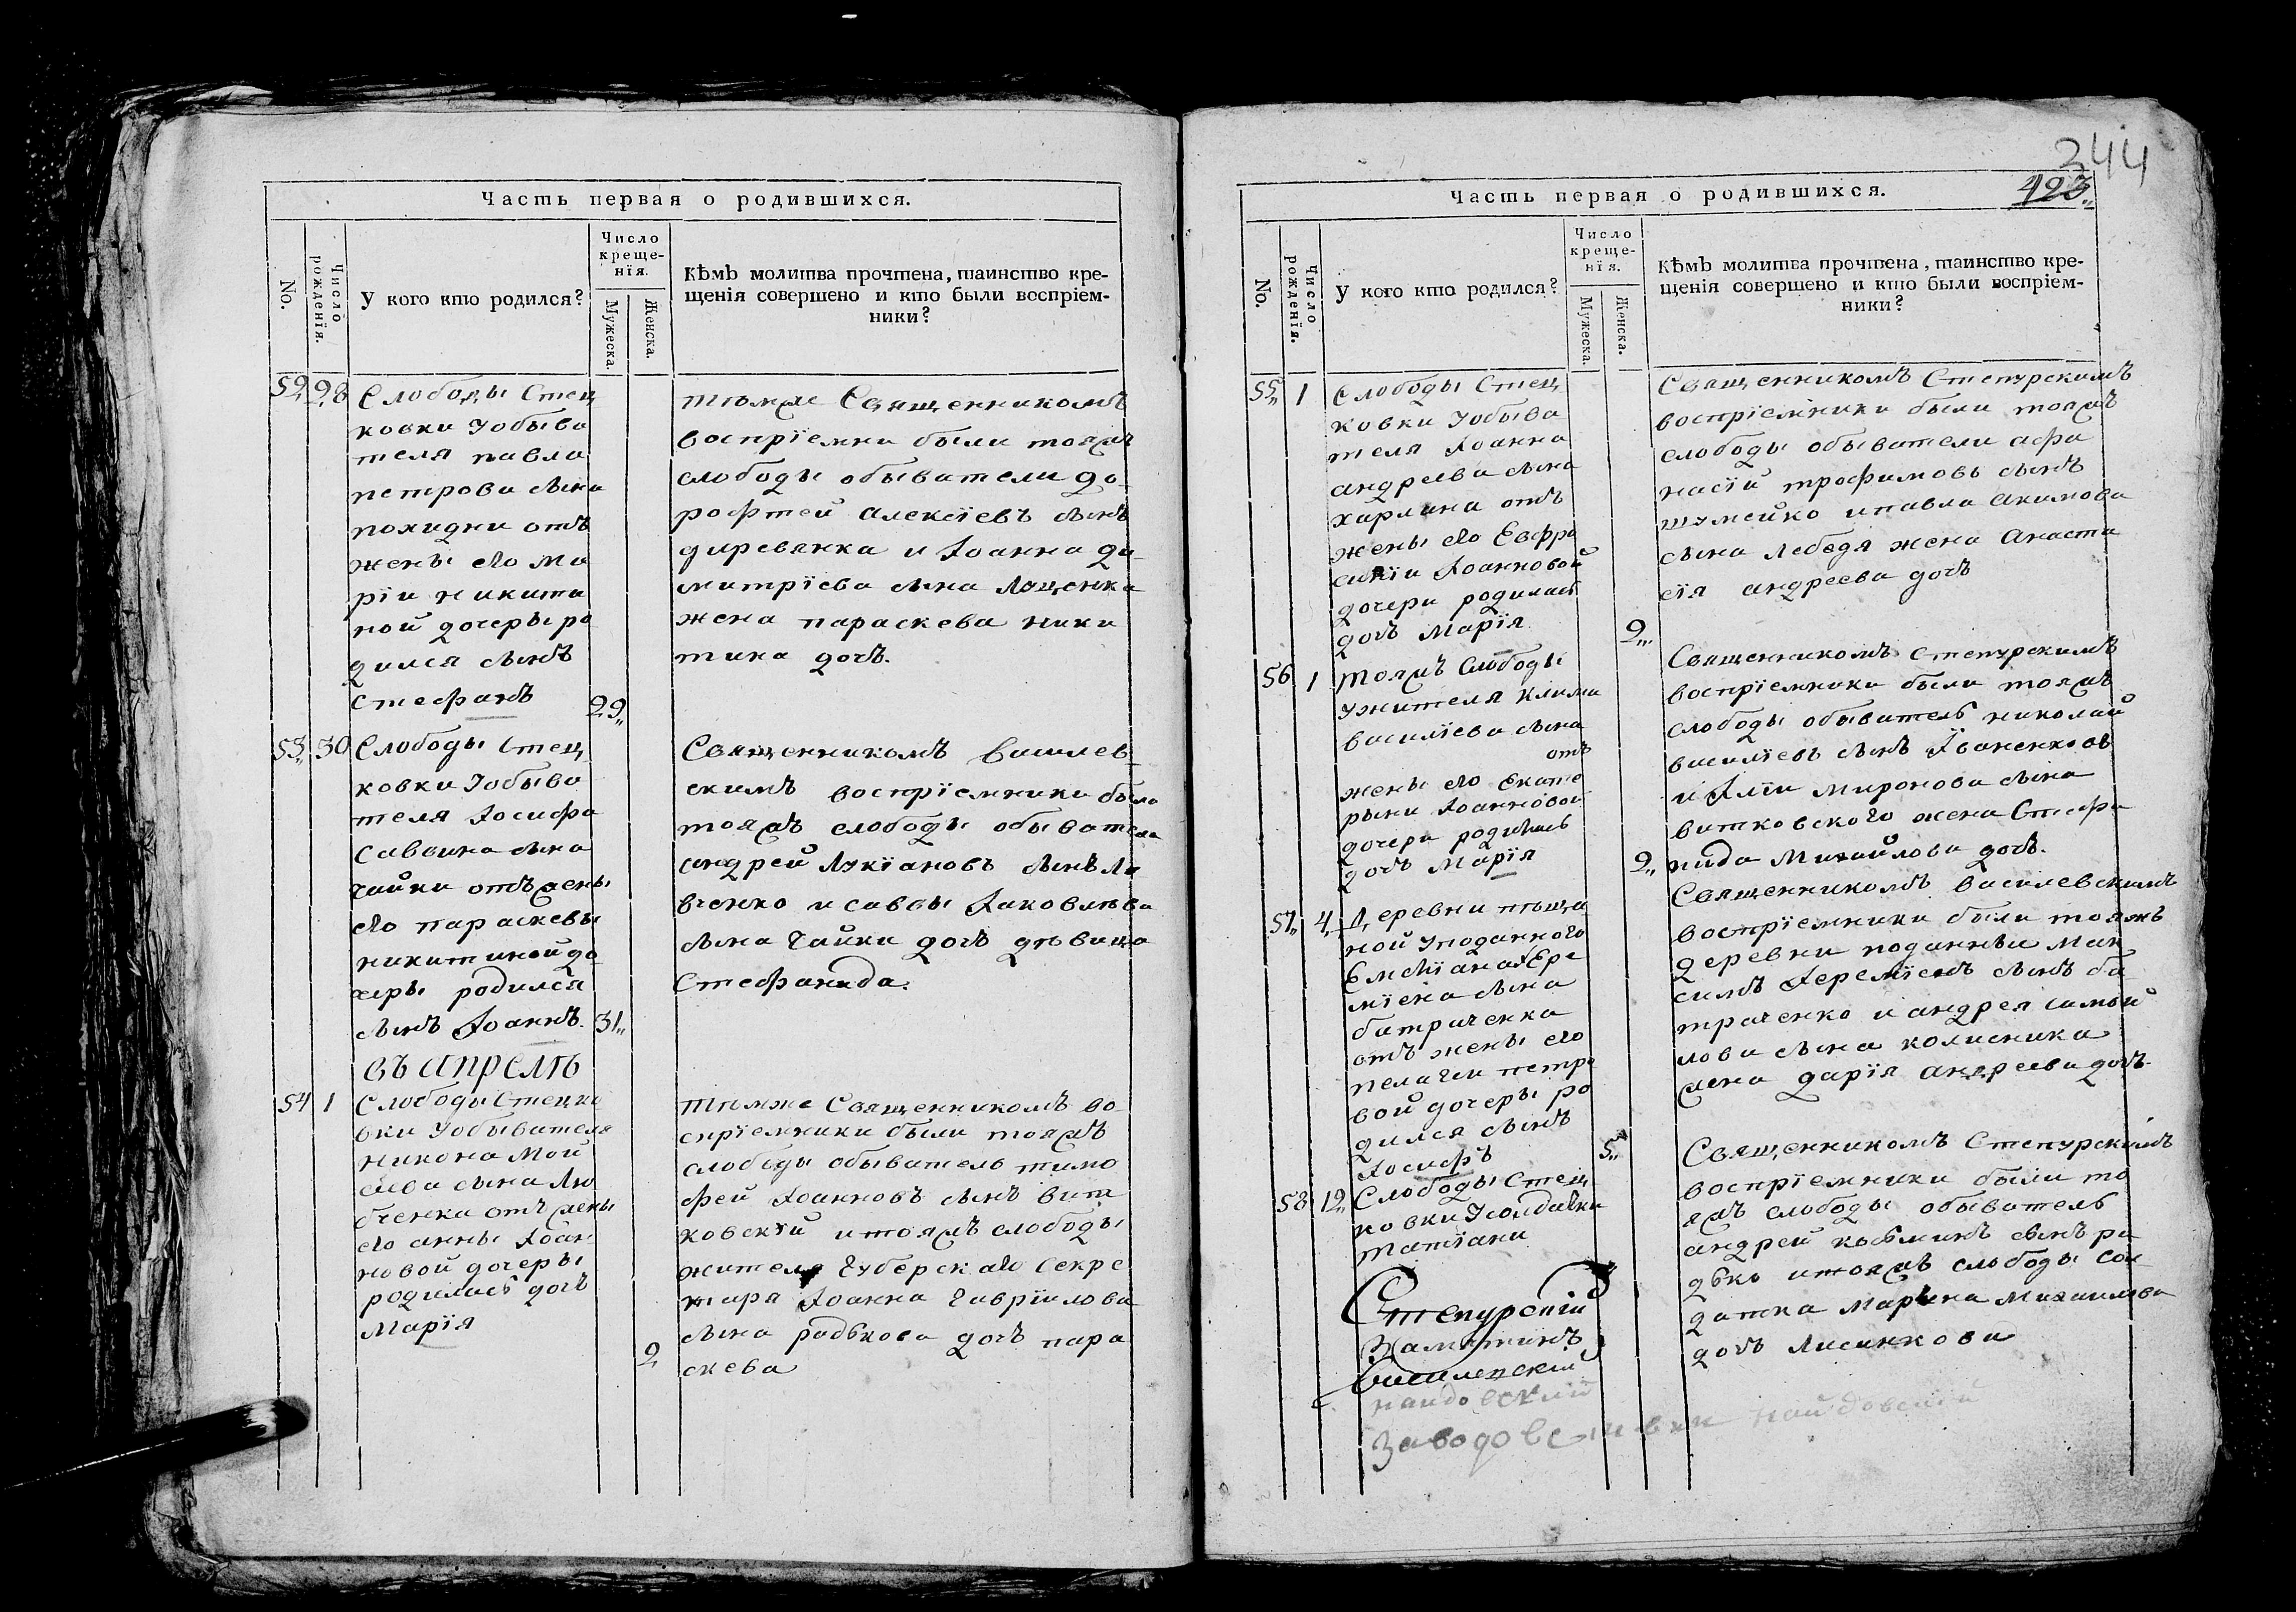 Часть первая о родившихся.
No.
Число рожденія.
У кого кто родился?
Число
креще-
нія.
Мужеска.
Женска.
Кѣмъ молитва прочтена, таинство кре-
щенія совершено и кто были воспріем-
ники?
52,, 28
Слободы Стец
ковки У обыва
теля павла
петрова сына
похидни отъ
жены его Ма
ріи никити
ной дочеры ро
дился сынъ
Стефанъ
29,,
тѣмже Священникомъ
воспріемни были тояжъ
слободы обыватели до-
рофтей алексіевъ сынъ
диревянка и Іоанна ди
митріева сына Лященка
жена параскева ники
тина дочь.
53,, 30
Слободы Стец
ковки У обыва
теля Іосифа
Саввина сына
чайки отъ жены
его параскевы
никитиной до
черы родился
сынъ Іоаннъ.
31,,
Священникомъ Василев
скимъ воспріемники было
тояжъ слободы обыватели
андрей Лукіановъ сынъ Ли
вченко и саввы Іаковлѣва
сына Чайки дочь дѣвица
Стефанида.
въ апрелѣ
54 1
Слободы Стецко
вки У обывателя
Никона Мой
сіева сына Лю
бченка отъ жены
его анны Іоан
новой дочеры
родилась дочь
Марія
2,
тѣмже Священникомъ во
спріемники были тояжъ
слободы обыватель тимо
фей Іоанновъ сынъ вит
ковскій и тояжъ слободы
жителя Губерскаго Секре
таря Іоанна Гавріилова
сына радькова дочь пара
скева
344
423,,
Часть первая о родившихся.
No.
Число рожденія.
У кого кто родился?
Число
креще-
нія.
Мужеска.
Женска.
Кѣмъ молитва прочтена, таинство кре-
щенія совершено и кто были воспріем-
ники?
55,, 1
Слободы Стец
ковки У обыва
теля Іоанна
андреева сына
харлана отъ
жены его Евфро
синіи Іоанновой
дочери родилась
дочь Марія
2,,,
Священникомъ Степурскимъ
воспріемники были тояжъ
слободы обыватели афа
насій трофимовъ сынъ
шумейко и павла акимова
сына Лебедя жена Анаста
сія андреева дочь
56 1
тояжъ Слободы
у жителя Клима
василіева сына
отъ
жены его Екате
рыни Іоанновой
дочери родилась
дочь Марія
2,,
Священникомъ Степурскимъ
воспріемники были тояжъ
слободы обыватель николай
василіевъ сынъ Іваненковъ
и Іліи миронова сына
витковского жена Стефа
нида Михайлова дочь.
57,, 4,
Деревни пѣща
ной У поданного
Емеліана Ере
міена сына
батраченка
отъ жены его
пелагеи петро
вой дочеры ро
дился сынъ
Іосифъ
5,,
Священникомъ василевскимъ
воспріемники были тояжъ
деревни поданныи Мак
симъ Іереміенъ сынъ ба
траченко и андрея самой
лова сына колисника
жена дарія андреева дочь
58 12,,
Слободы Стец
ковки У солдатки
татіани
Священникомъ Степурскимъ
воспріемники были то
яжъ слободы обыватель
андрей козминъ сынъ ра
дько и тояжъ слободы Сол
датка Марина Михаилова
дочь Лисинкова
Степурскій
Замятинъ
Василевскій